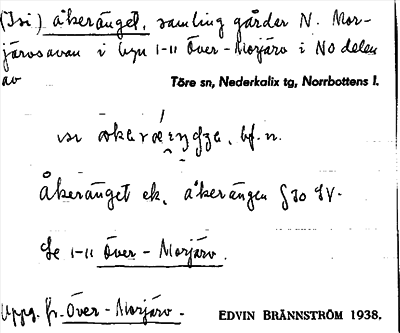 (Isi) åkeränget, samling gårder N. Mor-
järvsavan i byn 1-11 Över-Morjärv i NO delen
av Töre sn, Nederkalix tg, Norrbottens l.
Åkeränget ek. åkerängen § 30 SV.
Se 1-11 Över-Morjärv.
Uppg. fr. Över-Morjärv. EDVIN BRÄNNSTRÖM 1938.